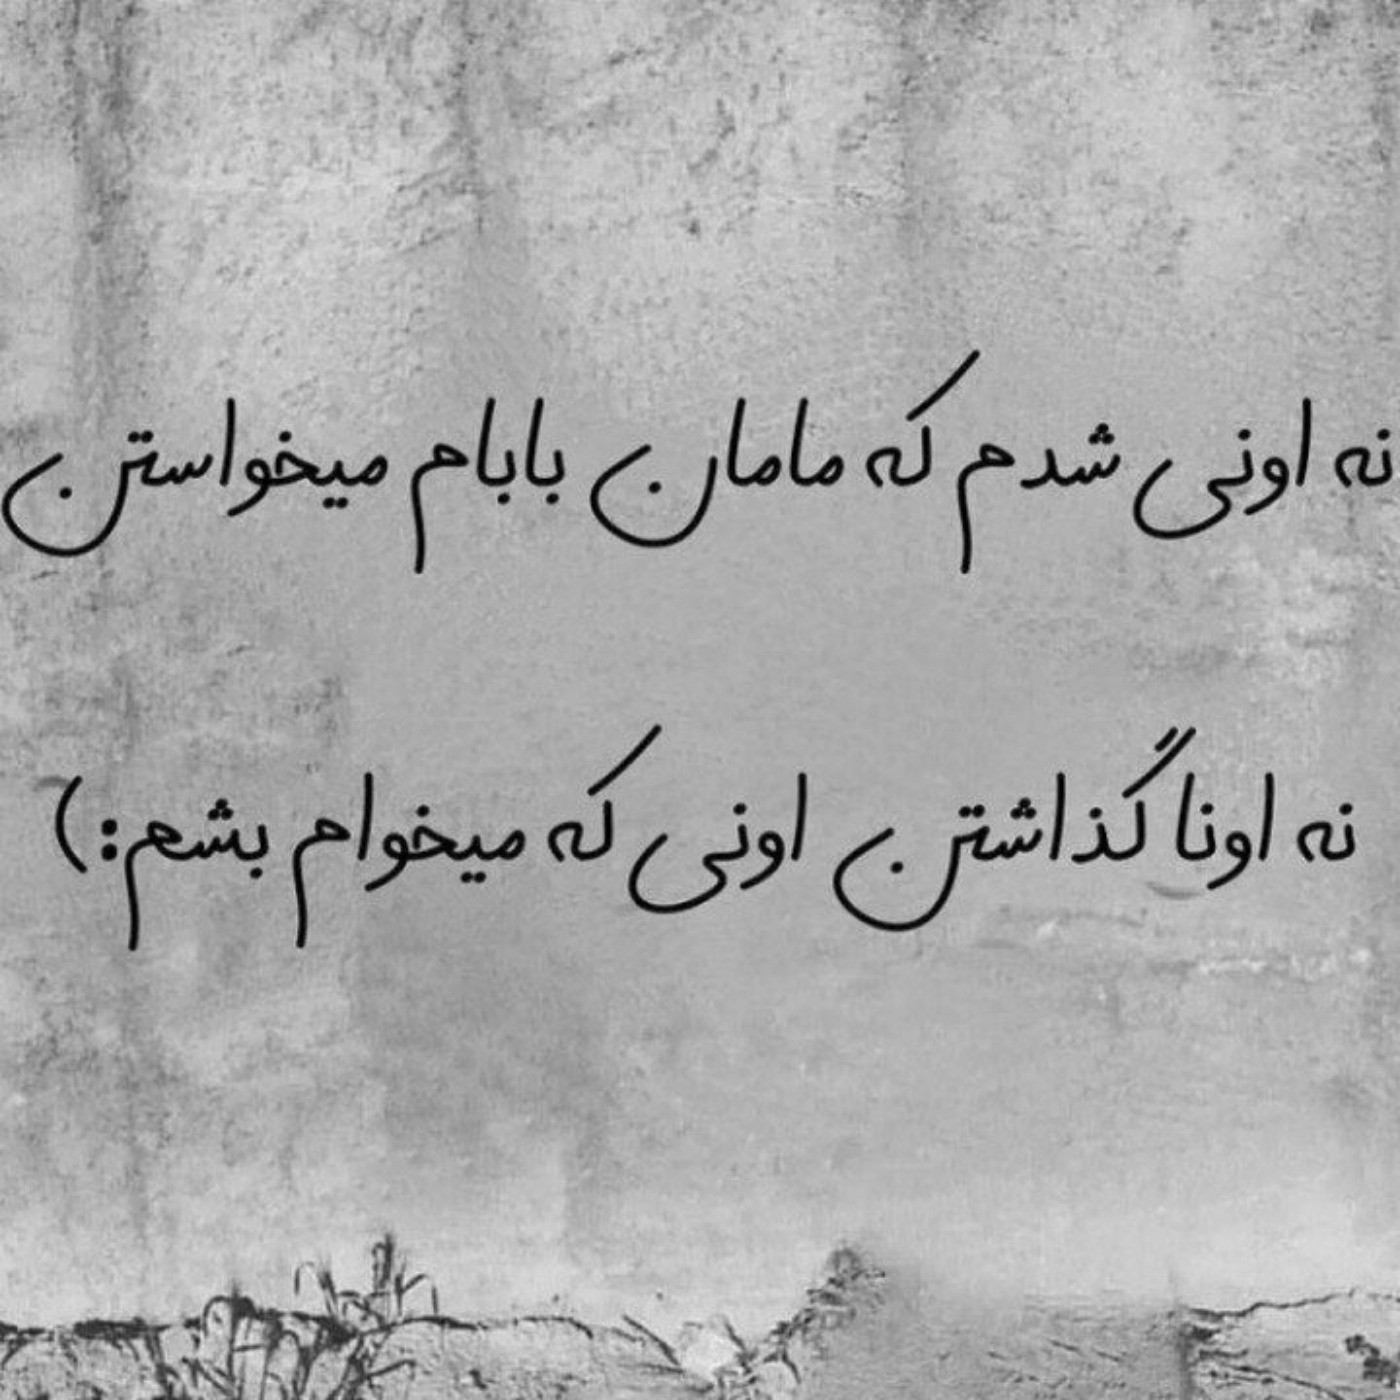 نه اونی شدم که مامان بابام میخواستن
نه اونا گذاشتن اونی که میخوام بشم:)